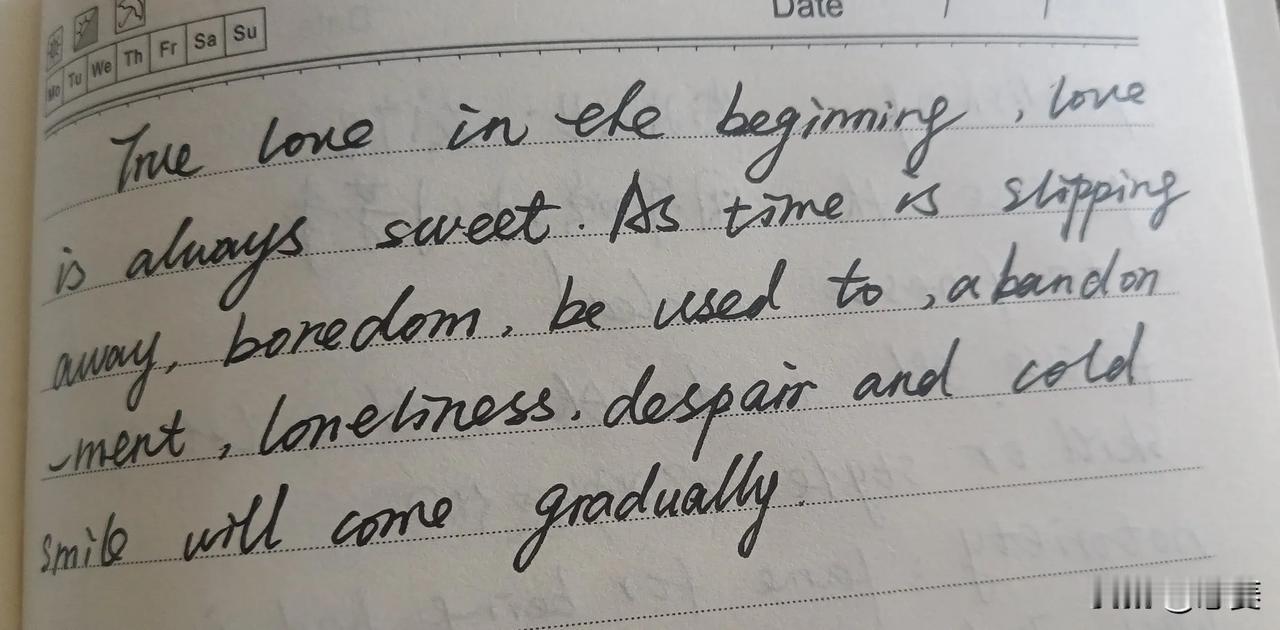 Date
Mo Tu We Th Fr Sa Su
True love in the beginning, love
is always sweet. As time is slipping
away, boredom, be used to, abandon
-ment, loneliness. despair and cold
smile will come gradually.